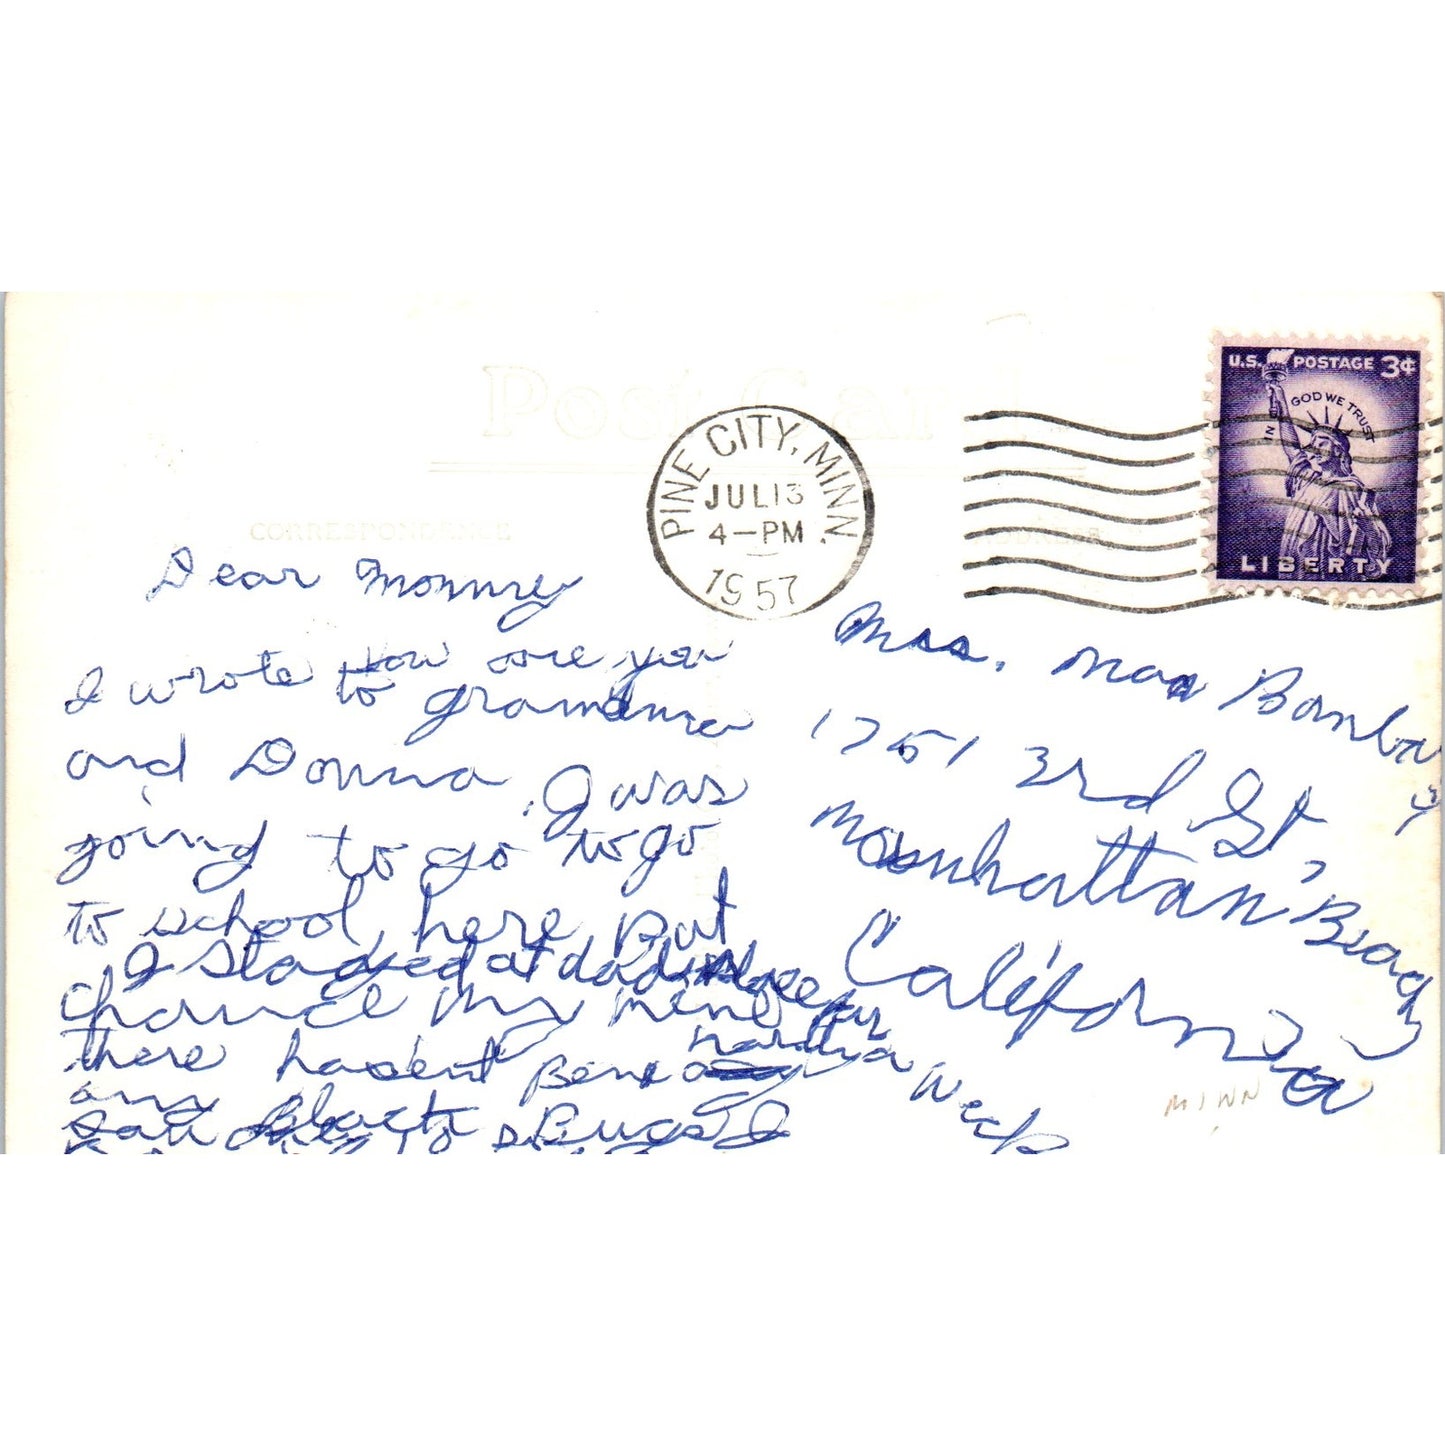 Post Card
CORRESPONDENCE
ADDRESS
PINE CITY, MINN.
JUL 13
4-PM
1957
U.S. POSTAGE 3¢
IN GOD WE TRUST
LIBERTY
Dear Mommy
How are you
I wrote to grandma
and Donna. I was
going to go to go
to school here But
I stayed at dad's place for
change my mind
nardia Week
there hasent Bene
any
Black Bugs I
Mrs. Mae
1751 3rd St,
Manhattan Beach
California
MINN